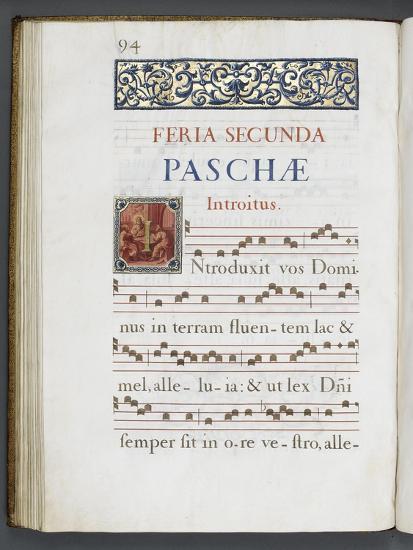 94
FERIA SECUNDA
PASCHÆ
Introitus.
INtroduxit vos Domi-
nus in terram fluen-tem lac &
mel, alle-lu-ia: & ut lex Dñi
ſemper ſit in o-re ve-ſtro, alle-